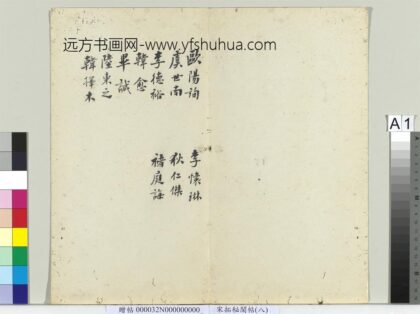 远方书画网- www.yfshuhua.com
歐陽詢
虞世南
李德裕
韓愈
畢誠
陸柬之
韓擇木
李懷琳
狄仁傑
褚庭誨
A 1
贈帖 000032N000000000 宋拓秘閣帖(八)